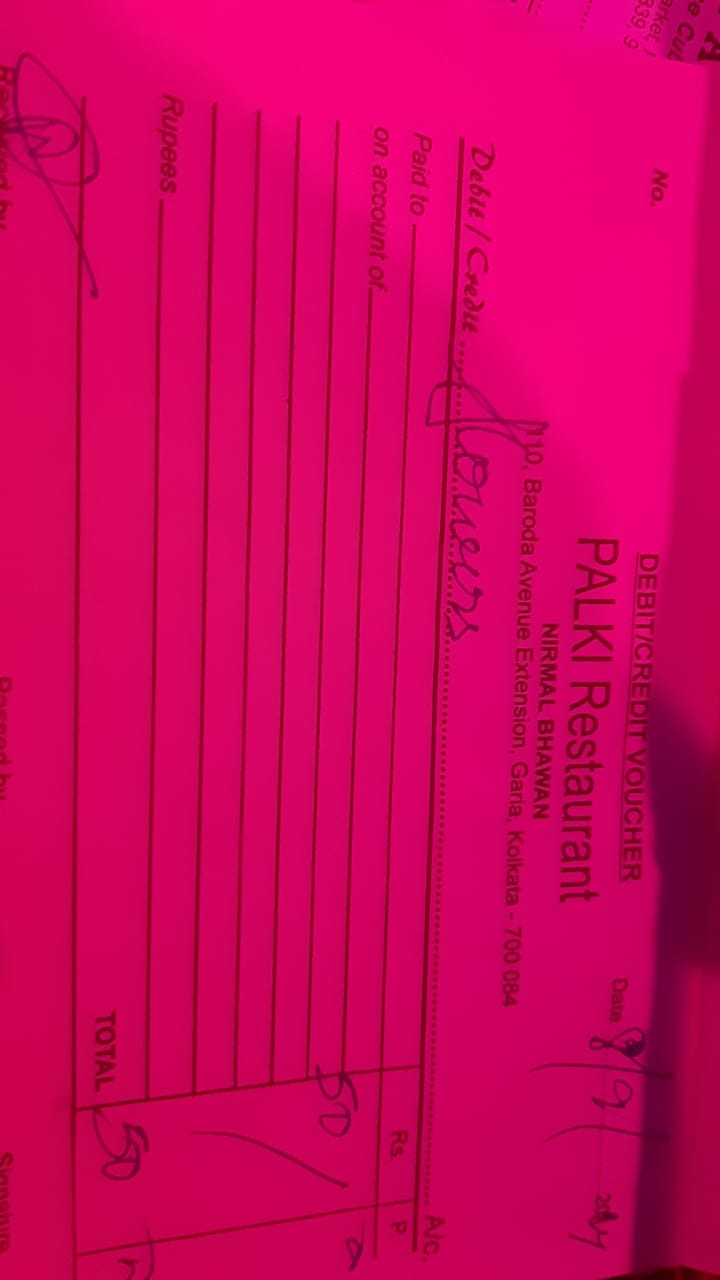 No.
DEBIT/CREDIT VOUCHER
PALKI Restaurant
NIRMAL BHAWAN
110, Baroda Avenue Extension, Garia, Kolkata - 700 084
Date 8/9/
Debit / Credit A/c.
Paid to Rs. P.
on account of
50
Rupees
TOTAL 50
Received by Passed by Signature